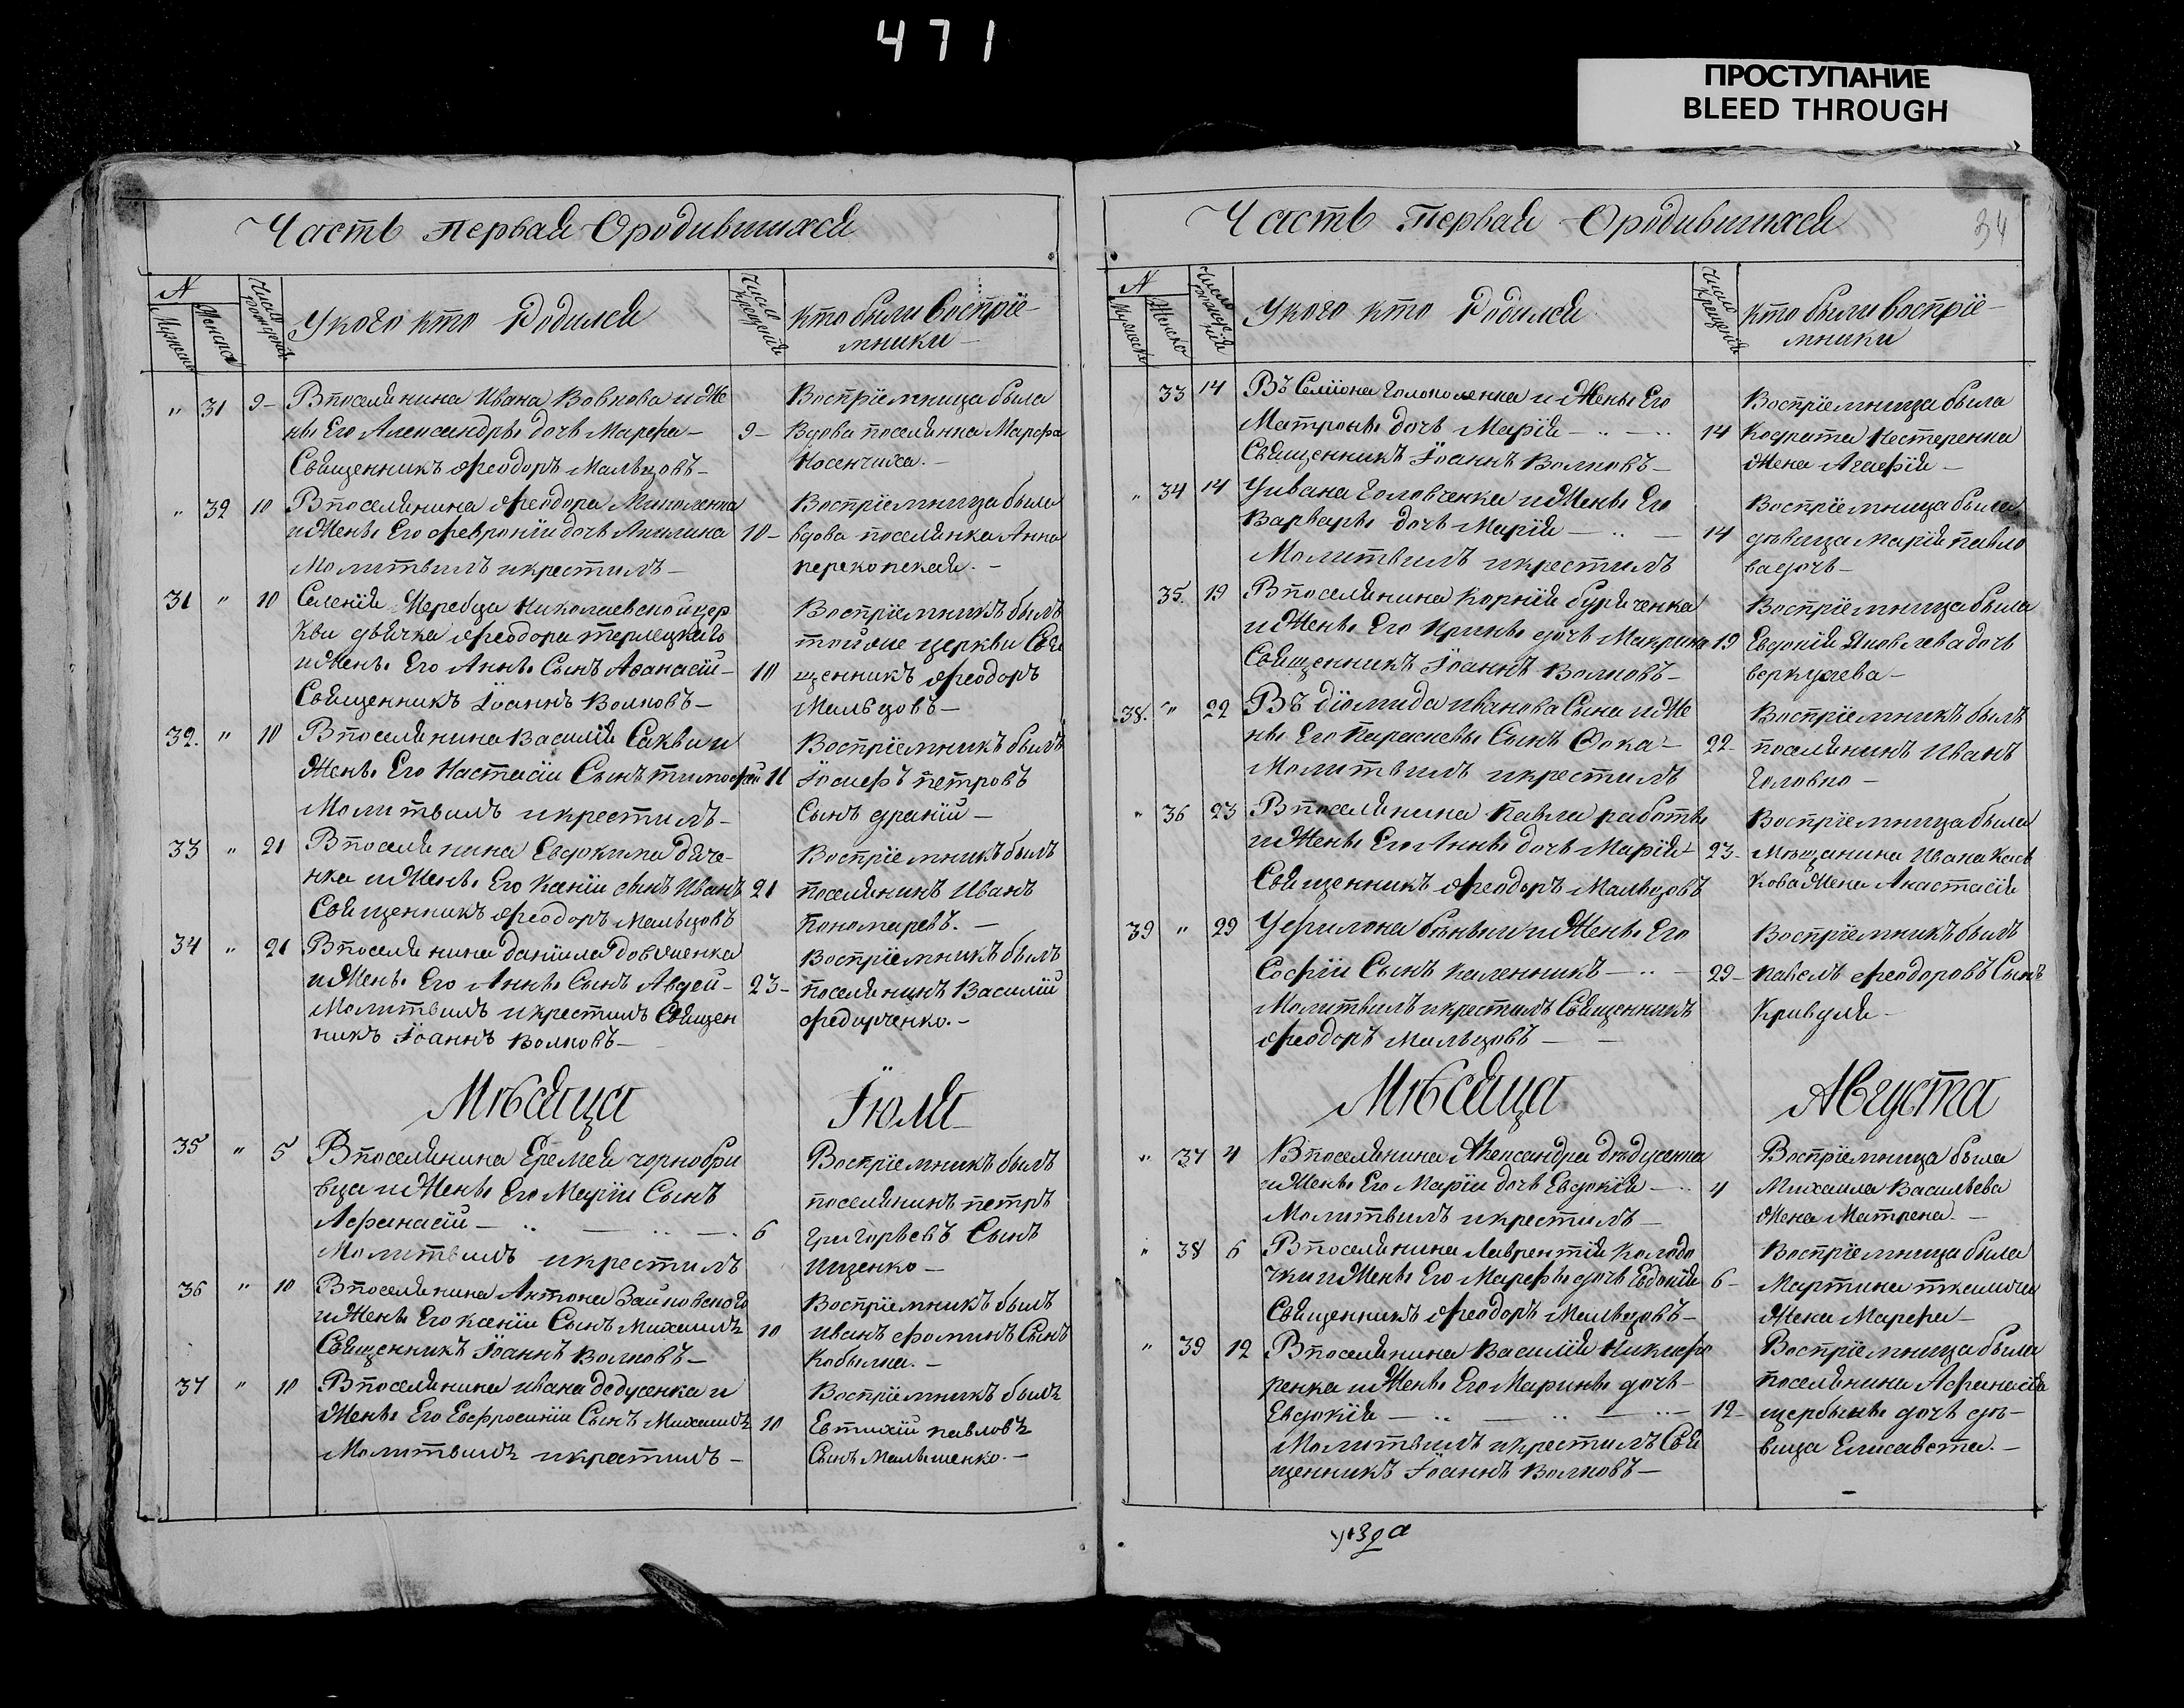 471
ПРОСТУПАНИЕ
BLEED THROUGH
Часть первая Ородившихся
N
Мужеска
Женска
Числа рождения
Укого кто Родился
Числа крещения
кто были воспріе-
мники -
" 31 9- Впоселянина Ивана Вовкова и Же
нѣ Его Александрѣ дочь Марфа-
Священникъ Феодоръ Мальцовъ-
9-
Воспріемница была
Вдова поселянка Марфа
Носенчиха.-
" 32 10 Впоселянина Феодора Миколенка
и Женѣ Его Февроніи дочь Акилина
Молитвилъ икрестилъ-
10-
Воспріемница была
вдова поселянка Анна
перекопская.-
31 " 10 Селенія Жеребца Николаевской цер
кви дьячка Феодора терлецкаго
и Женѣ Его Аннѣ Сынъ Аѳанасій-
Священникъ Іоаннъ Волковъ-
10
Воспріемникъ былъ
тойже церкви Свя
щенникъ Феодоръ
Мальцовъ-
32. " 10 Впоселянина Василія Сакви и
Женѣ Его Настасіи Сынъ тимофей
Молитвилъ икрестилъ-
11
Воспріемникъ былъ
Іосифъ петровъ
Сынъ драній-
33 " 21 Впоселянина Евдокима дяче-
нка и Женѣ Его Ксеніи сынъ Иванъ
Священникъ Феодоръ Мальцовъ
21
Воспріемникъ былъ
поселянинъ Иванъ
Кономаревъ.-
34 " 21 Впоселянина даніила довженка
и Женѣ Его Аннѣ Сынъ Авдей-
Молитвилъ икрестилъ Священ
никъ Іоаннъ Волковъ-
23-
Воспріемникъ былъ
поселянинъ Василій
Федирченко.-
Мѣсяца Іюля
35 " 5 Впоселянина Еремея чорнобри
вца и Женѣ Его Маріи Сынъ
Афанасій-
Молитвилъ икрестилъ
6
Воспріемникъ былъ
поселянинъ петръ
Григорьевъ Сынъ
Ищенко-
36 " 10 Впоселянина Антона Зайковского
и Женѣ Его Ксеніи Сынъ Михаилъ
Священникъ Іоаннъ Волковъ-
10
Воспріемникъ былъ
Иванъ Фоминъ Сынъ
Кобылка.-
37 " 10 Впоселянина ивана дедусенка и
Женѣ Его Евфросиніи Сынъ Михаилъ
Молитвилъ икрестилъ-
10
Воспріемникъ былъ
Евтихій павловъ
Сынъ Малышенко.-
Часть первая Ородившихся
34
N
Мужеска
Женска
Число рожденія
Укого кто Родился
Число крещения
кто были воспріе-
мники
33 14 Въ Семіона Голоколенка и Женѣ Его
Матронѣ дочь Марія-
Священникъ Іоаннъ Волковъ-
14
Воспріемница была
Кодрата Нестеренка
Жена Агафія-
" 34 14 Уивана Головченка и Женѣ Его
Варварѣ дочь Марія-
Молитвилъ икрестилъ
14
Воспріемница была
дѣвица Марія павло
вадочь-
35. 19 Впоселянина Корнія буряченка
и Женѣ Его Иринѣ дочь Макрина
Священникъ Іоаннъ Волковъ-
19
Воспріемница была
Евдокія Яковлева дочь
веркулева-
38. " 22 Въ діомида иванова Сына и Же
нѣ Его Параскевѣ Сынъ Фока-
Молитвилъ икрестилъ
22-
Воспріемникъ былъ
поселянинъ Иванъ
Головко-
" 36 23 Впоселянина Павла работѣ
и Женѣ Его Аннѣ дочь Марія-
Священникъ Феодоръ Мальцовъ
23-
Воспріемница была
Мѣщанина Ивана
Жена Анастасія
39 " 29 Уфилона и Женѣ Его
Софіи Сынъ Каленникъ-
Молитвилъ икрестилъ Священникъ
Феодоръ Мальцовъ-
29-
Воспріемникъ былъ
павелъ Феодоровъ Сынъ
Кривуля-
Мѣсяца Августа
" 37 4 Впоселянина Александра дѣдусенка
и Женѣ Его Маріи дочь Евдокія-
Молитвилъ икрестилъ-
4
Воспріемница была
Михаила Васильева
Жена Матрена.-
" 38 6 Впоселянина Лаврентія Колодо
чки и Женѣ Его Марфѣ дочь Евдокія
Священникъ Феодоръ Мальцовъ-
6-
Воспріемница была
Мартина ткалича
Жена Марфа-
" 39 12 Впоселянина Василія Никифо
ренка и Женѣ Его Маринѣ дочь-
Евдокія-
Молитвилъ икрестилъ Свя
щенникъ Іоаннъ Волковъ-
12-
Воспріемница была
поселянина Афанасія
щербынѣ дочь дѣ-
вица Елисавета.-